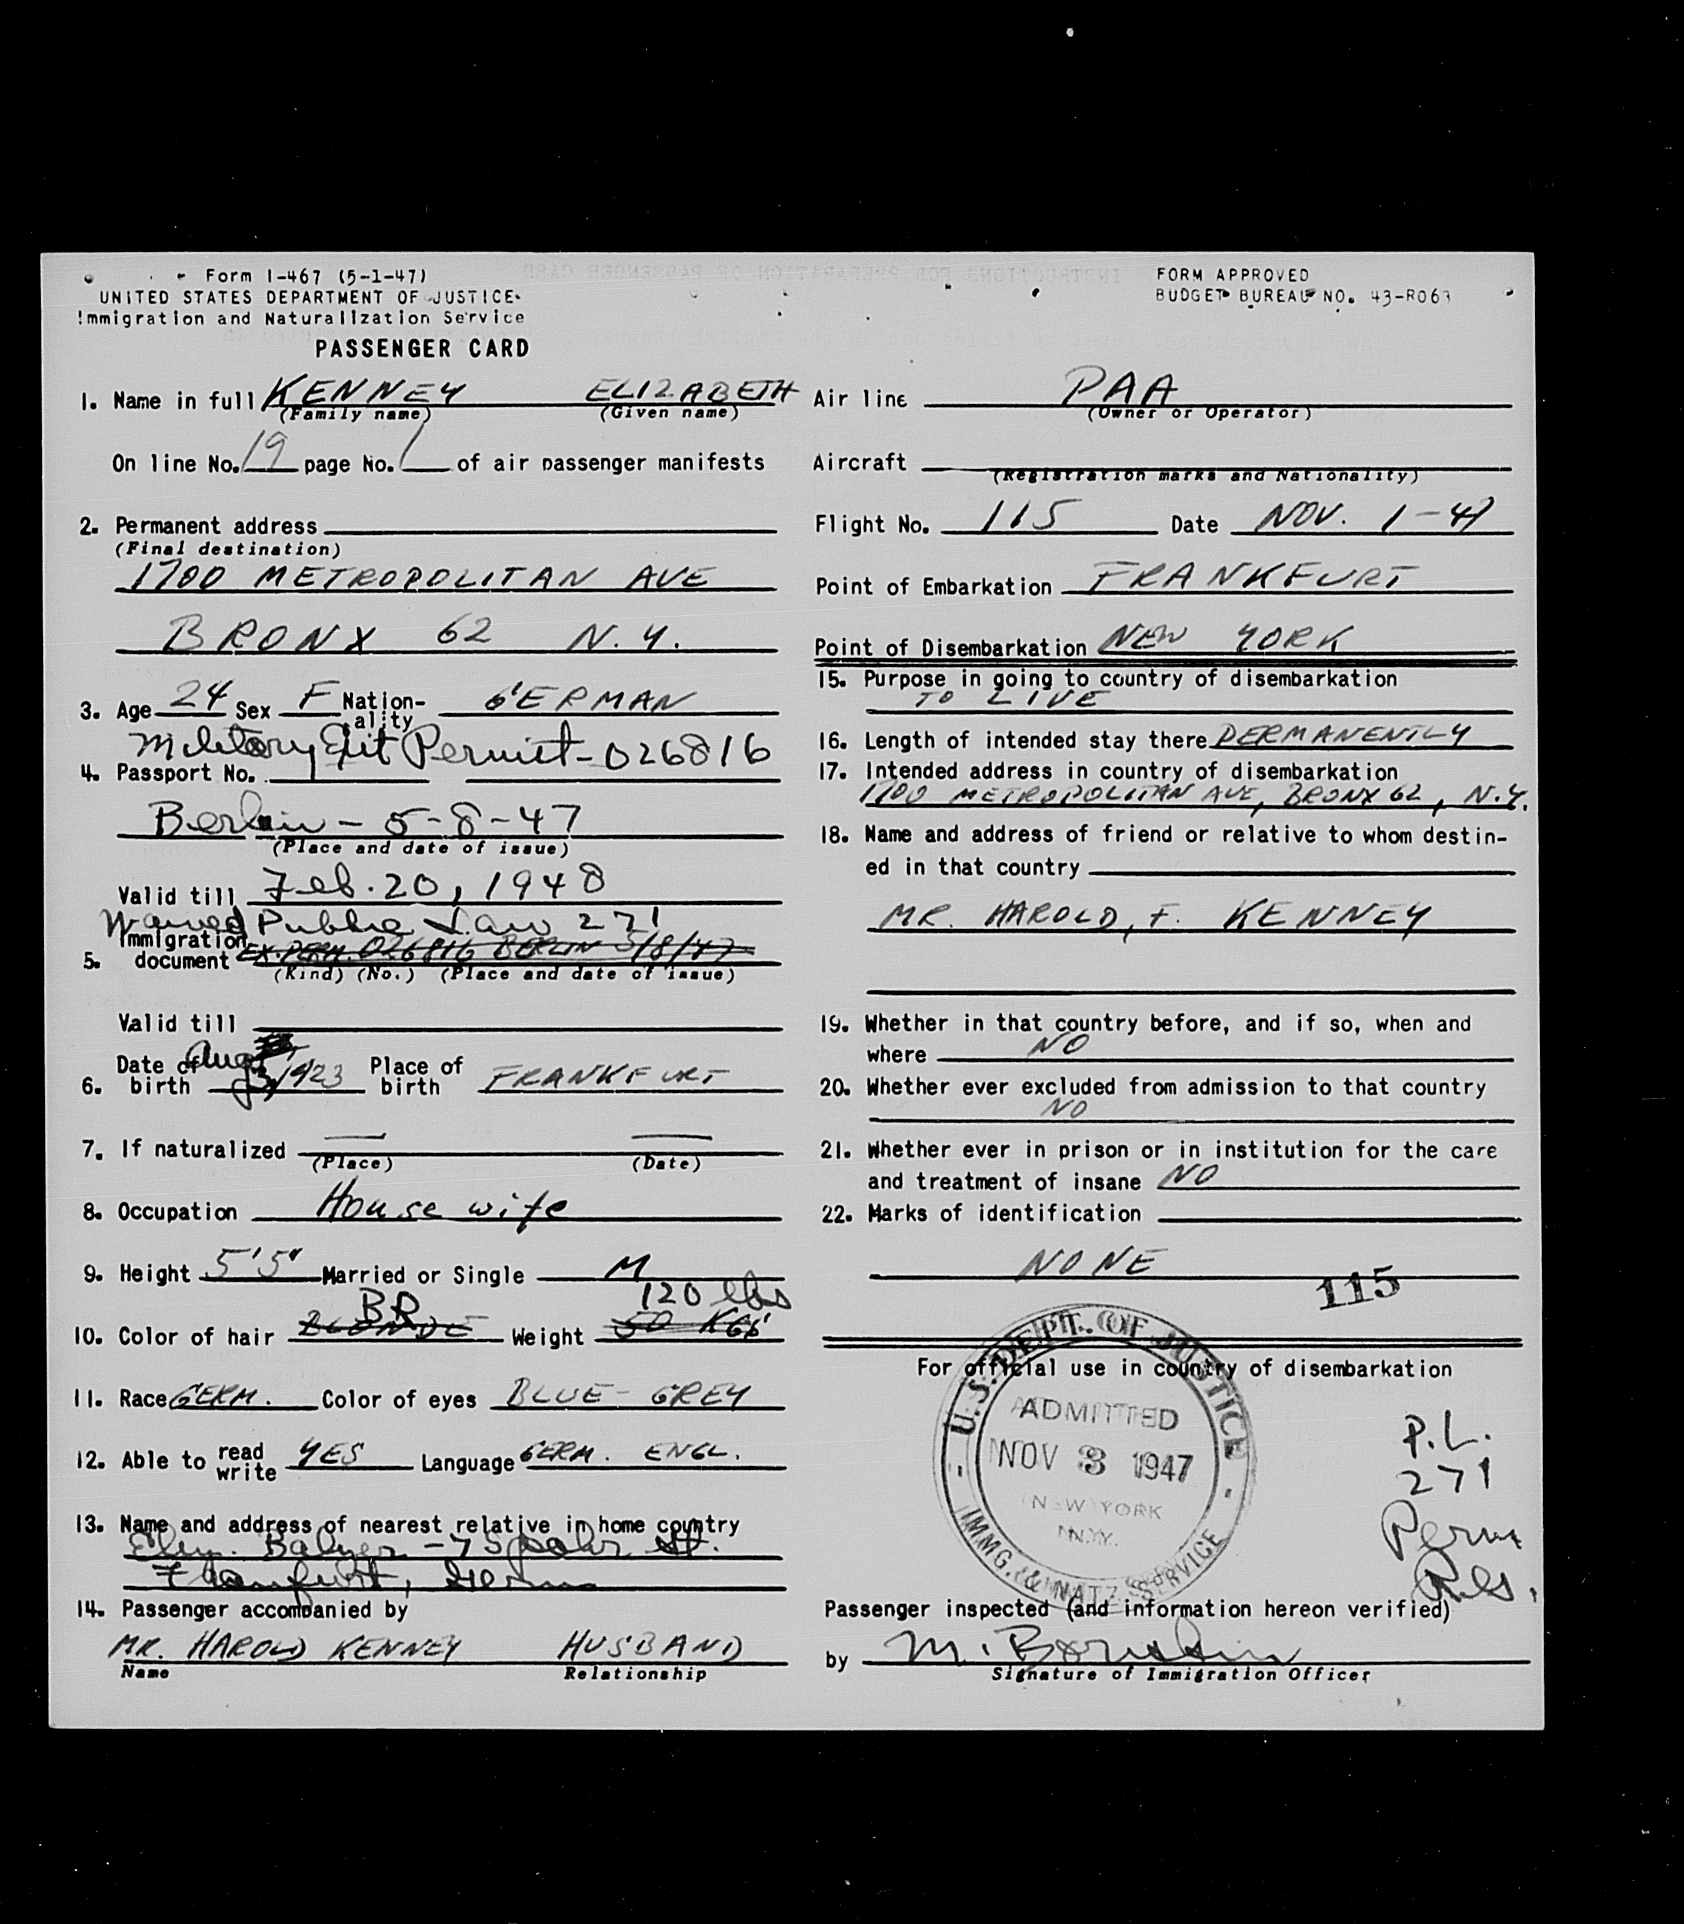 Form I-467 (5-1-47)
UNITED STATES DEPARTMENT OF JUSTICE
Immigration and Naturalization Service
PASSENGER CARD
FORM APPROVED
BUDGET BUREAU NO. 43-R063
1. Name in full KENNEY ELIZABETH
(Family name) (Given name)
On line No. 19 page No. 1 of air passenger manifests
2. Permanent address
(Final destination)
1700 METROPOLITAN AVE
BRONX 62 N.Y.
3. Age 24 Sex F Nation-ality GERMAN
Military Exit Permit - 026816
4. Passport No.
Berlin - 5-8-47
(Place and date of issue)
Valid till Feb. 20, 1948
Waived Public Law 271
5. Immigration document EX. PERM. 026816 BERLIN 5/8/47
(Kind) (No.) (Place and date of issue)
Valid till
6. Date of birth Aug 3, 1923 Place of birth FRANKFURT
7. If naturalized — —
(Place) (Date)
8. Occupation House wife
9. Height 5'5" Married or Single M
BR 120 lbs
10. Color of hair BLONDE Weight 50 KGS
11. Race GERM. Color of eyes BLUE-GREY
12. Able to read write YES Language GERM. ENGL.
13. Name and address of nearest relative in home country
- 7 Spohr St.
Frankfurt,
14. Passenger accompanied by
MR. HAROLD KENNEY HUSBAND
Name Relationship
Air line PAA
(Owner or Operator)
Aircraft
(Registration marks and Nationality)
Flight No. 115 Date NOV. 1-47
Point of Embarkation FRANKFURT
Point of Disembarkation NEW YORK
15. Purpose in going to country of disembarkation
TO LIVE
16. Length of intended stay there PERMANENTLY
17. Intended address in country of disembarkation
1700 METROPOLITAN AVE, BRONX 62, N.Y.
18. Name and address of friend or relative to whom destin-
ed in that country
MR. HAROLD, F. KENNEY
19. Whether in that country before, and if so, when and
where NO
20. Whether ever excluded from admission to that country
NO
21. Whether ever in prison or in institution for the care
and treatment of insane NO
22. Marks of identification
NONE
115
For official use in country of disembarkation
U.S. DEPT. OF JUSTICE
ADMITTED
NOV 3 1947
NEW YORK
N.Y.
IMMG. & NATZ. SERVICE
P.L.
271
Perm
Res.
Passenger inspected (and information hereon verified)
by M. Bornstein
Signature of Immigration Officer